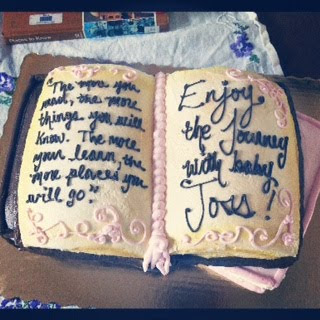 "The more you
read, the more
things you will
know. The more
your learn, the
more places you
will go."
Enjoy
the Journey
with baby
Joss!